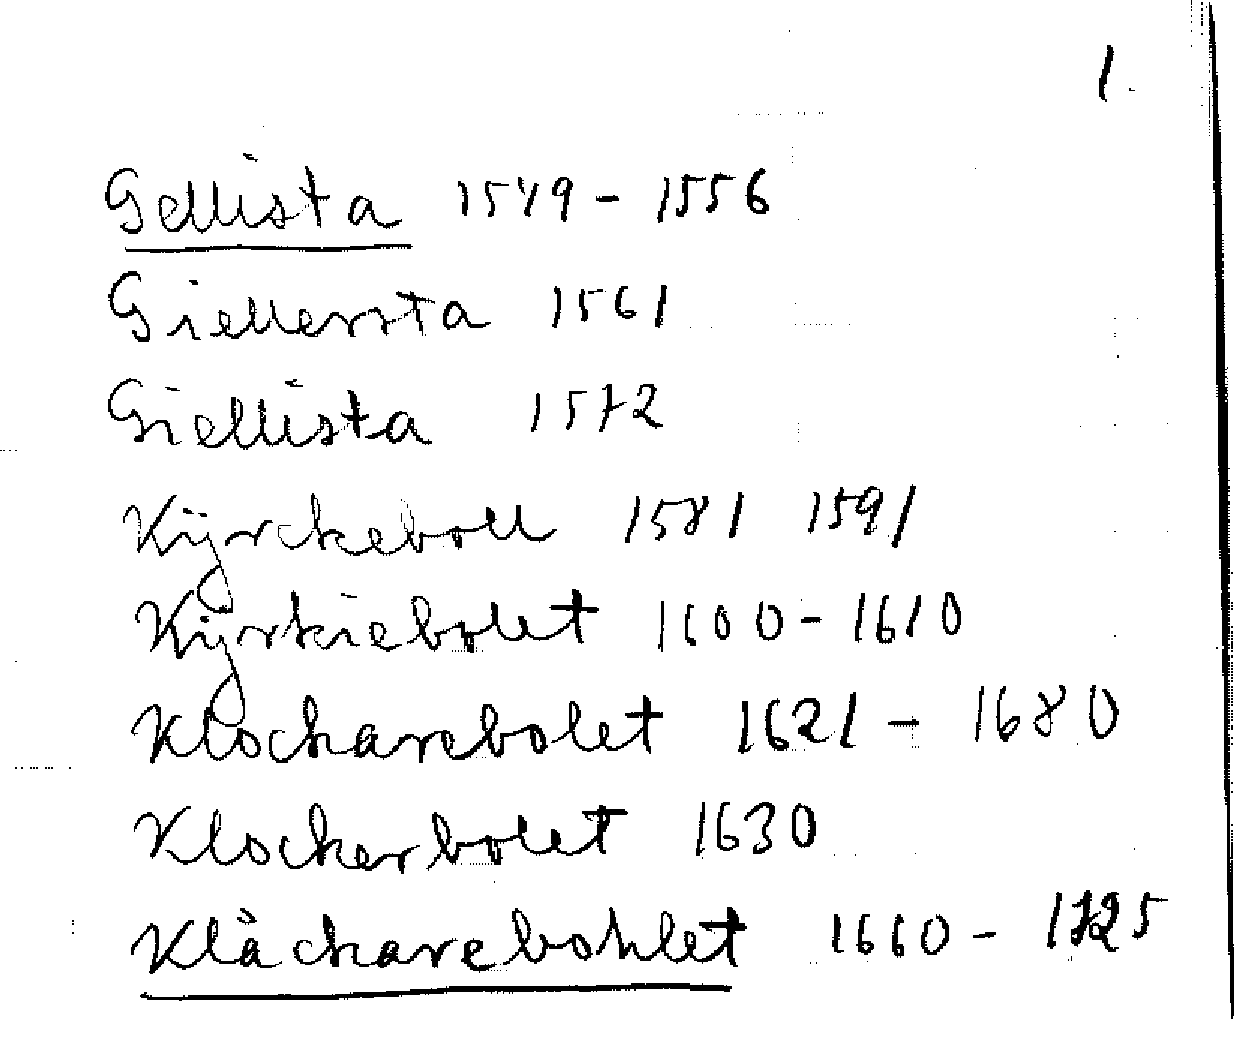 1.
Gellista 1549 - 1556
Giellersta 1561
Giellista 1572
Kÿrckeboll 1581 1591
Kÿrkiebolet 1600 - 1610
Klockarebolet 1621 - 1680
Klockerbolet 1630
Klåckarebohlet 1660 - 1725